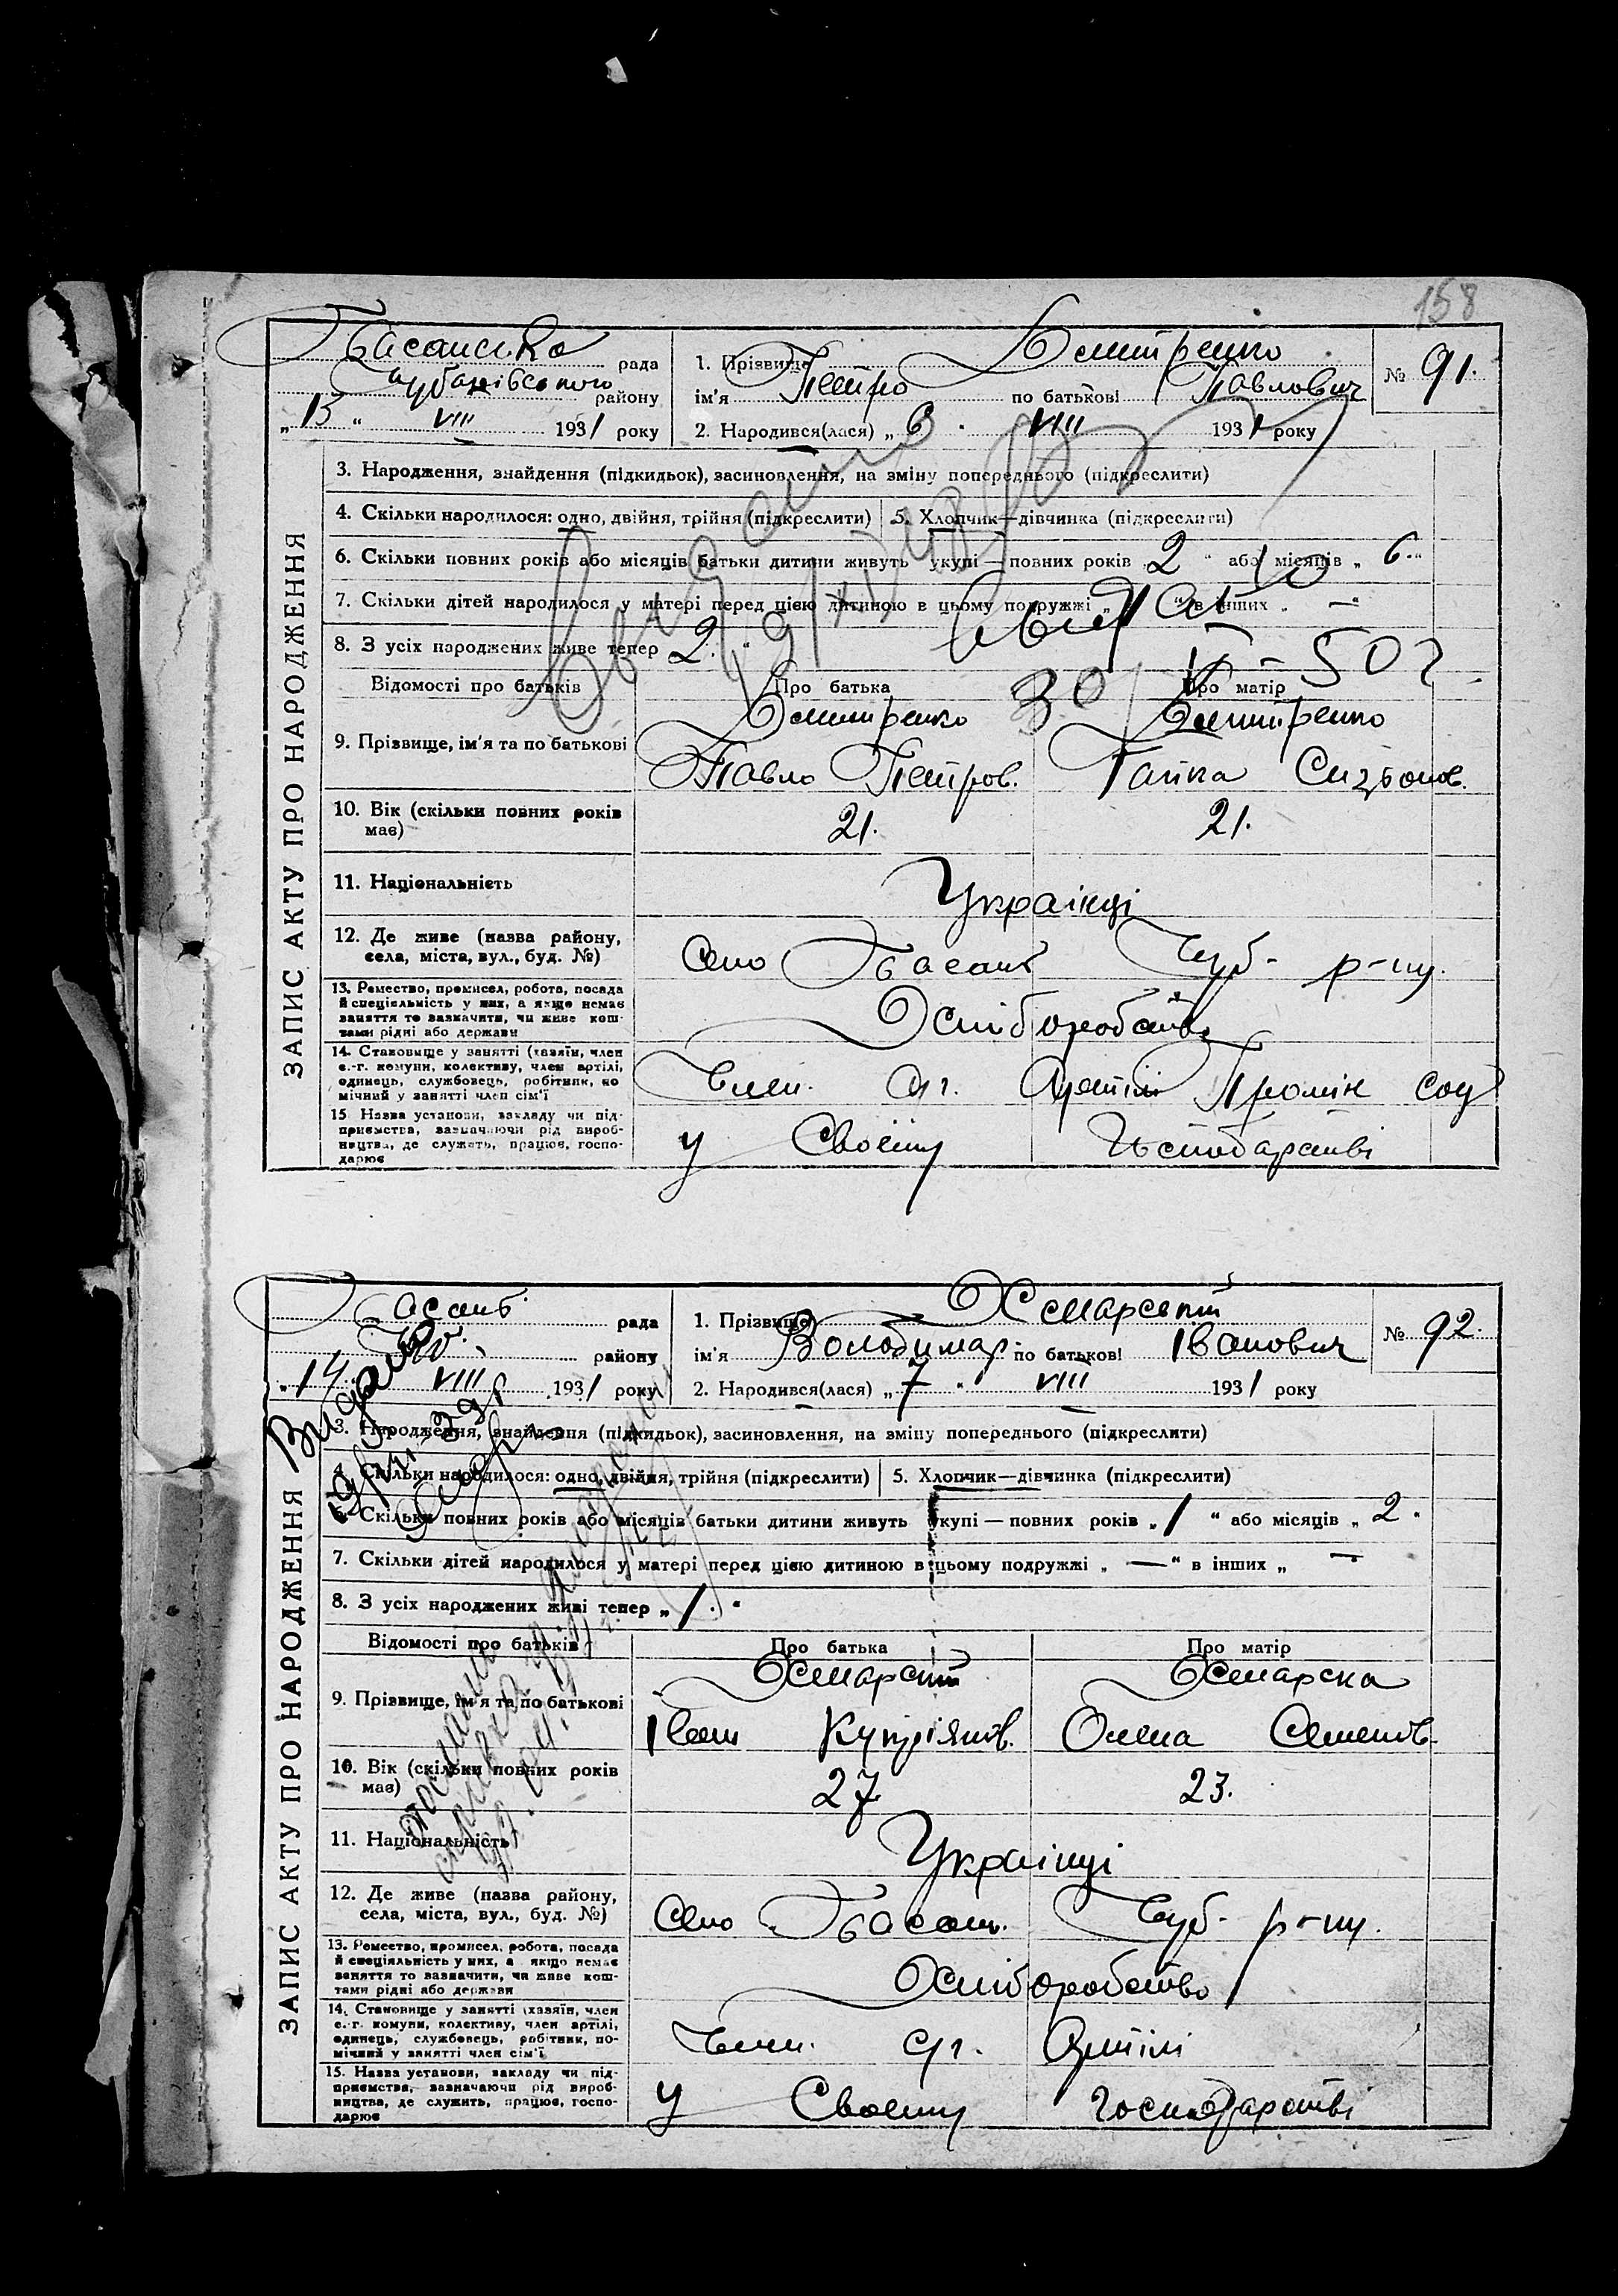 158
Басанська рада
Чубарівського району
„13“ VIII 1931 року
1. Прізвище Дмитренко
ім'я Петро по батькові Павлович
№ 91.
2. Народився(лася) „6“ VIII 1931 року
ЗАПИС АКТУ ПРО НАРОДЖЕННЯ
3. Народження, знайдення (підкидьок), засиновлення, на зміну попереднього (підкреслити)
4. Скільки народилося: одно, двійня, трійня (підкреслити) 5. Хлопчик—дівчинка (підкреслити)
6. Скільки повних років або місяців батьки дитини живуть укупі — повних років „2“ або місяців „6.“
7. Скільки дітей народилося у матері перед цією дитиною в цьому подружжі „1“ в інших „—“
8. З усіх народжених живе тепер 2.
Відомості про батьків Про батька Про матір
9. Прізвище, ім'я та по батькові Дмитренко Дмитренко
Павло Петров. Ганна
10. Вік (скільки повних років має) 21. 21.
11. Національність Українці
12. Де живе (назва району, села, міста, вул., буд. №) Село Басань Чуб. р-ну.
13. Ремество, промисел, робота, посада й спеціяльність у них, а якщо немає заняття то зазначити, чи живе коштами рідні або держави
14. Становище у занятті (хазяїн, член с.-г. комуни, колективу, член артілі, одинець, службовець, робітник, помічний у занятті член сім'ї Член. с.г. Артілі Промінь соц
15 Назва установи, закладу чи підприємства, зазначаючи рід виробництва, де служить, працює, господарює у Своєму Господарстві
Басань рада
району
„14“ VIII 1931 року
1. Прізвище
ім'я Володимир по батькові Іванович
№ 92.
2. Народився(лася) „7“ VIII 1931 року
Видано
ЗАПИС АКТУ ПРО НАРОДЖЕННЯ
3. Народження, знайдення (підкидьок), засиновлення, на зміну попереднього (підкреслити)
4. Скільки народилося: одно, двійня, трійня (підкреслити) 5. Хлопчик—дівчинка (підкреслити)
6. Скільки повних років або місяців батьки дитини живуть укупі — повних років „1“ або місяців „2“
7. Скільки дітей народилося у матері перед цією дитиною в цьому подружжі „—“ в інших „—
8. З усіх народжених живі тепер „1.“
Відомості про батьків Про батька Про матір
9. Прізвище, ім'я та по батькові
Іван Купріянов. Олена Семенов.
10. Вік (скільки повних років має) 27 23.
11. Національність Українці
12. Де живе (назва району, села, міста, вул., буд. №) Село Басань. Чуб. р-ну.
13. Ремество, промисел, робота, посада й спеціяльність у них, а якщо немає заняття то зазначити, чи живе коштами рідні або держави
14. Становище у занятті (хазяїн, член с.-г. комуни, колективу, член артілі, одинець, службовець, робітник, помічний у занятті член сім'ї Член. с.г. Артілі
15. Назва установи, закладу чи підприємства, зазначаючи рід виробництва, де служить, працює, господарює у Своєму Господарстві